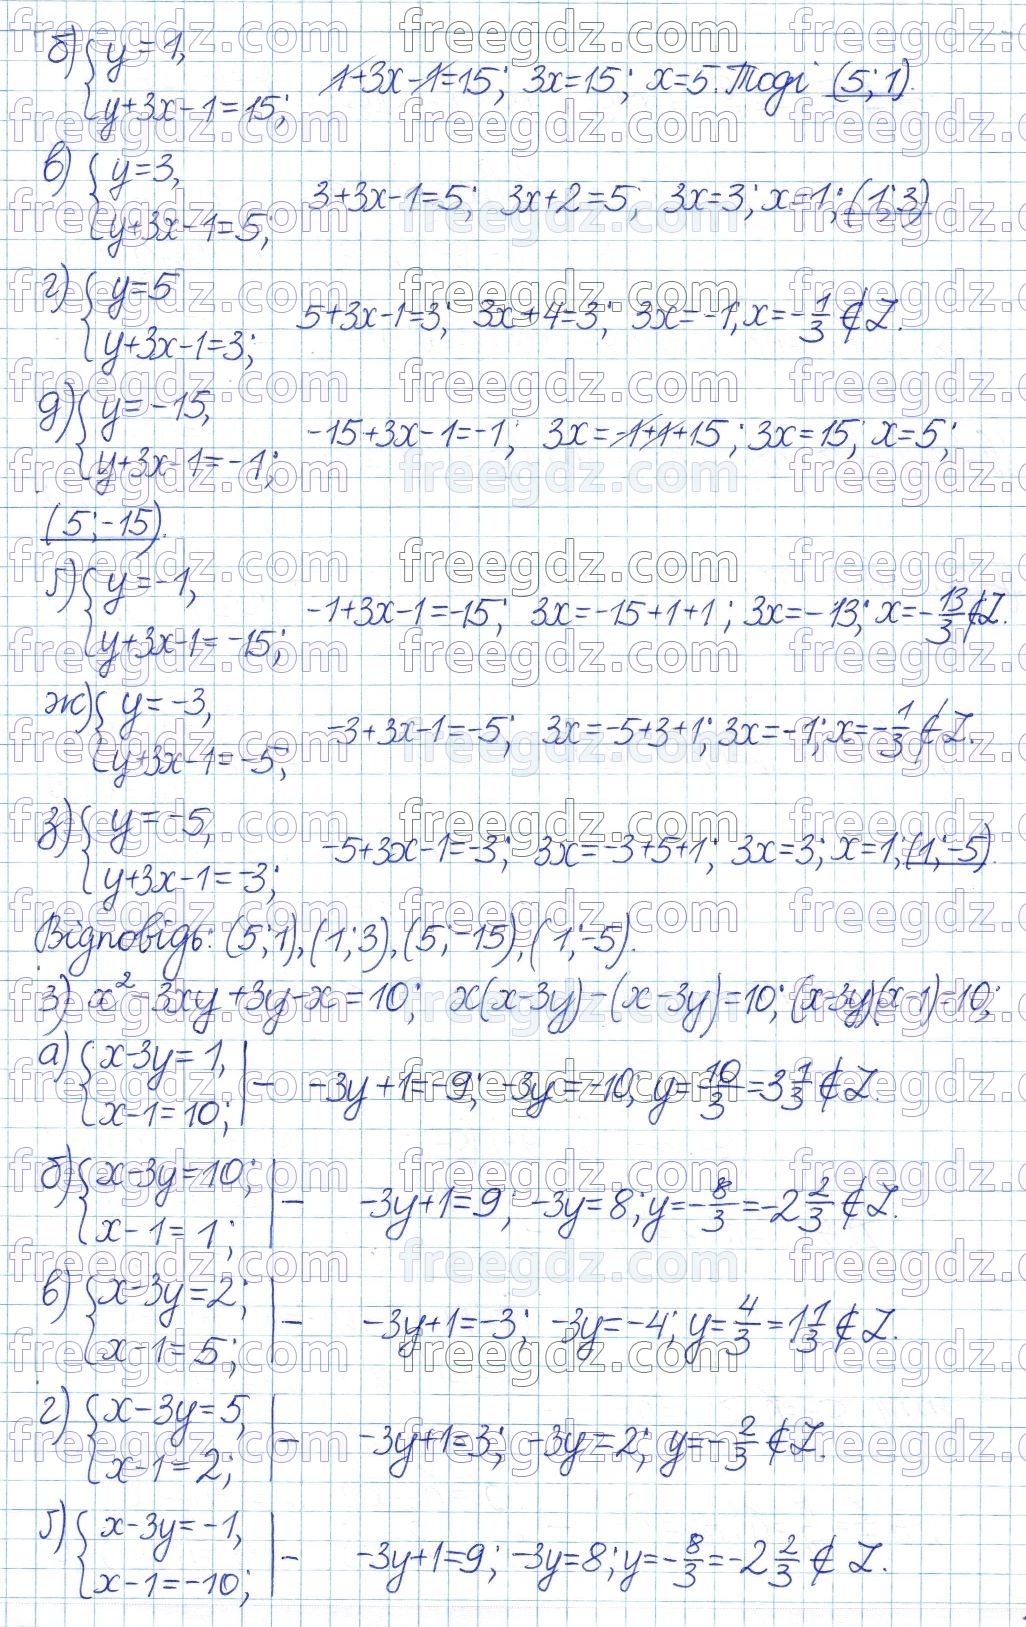 б) { y = 1,
y+3x-1=15; 1+3x-1=15; 3x=15; x=5. Тоді (5; 1).
в) { y=3,
y+3x-1=5; 3+3x-1=5; 3x+2=5; 3x=3; x=1; (1; 3)
г) { y=5
y+3x-1=3; 5+3x-1=3; 3x+4=3; 3x=-1, x=-1/3 ∉ Z.
д) { y=-15,
y+3x-1=-1; -15+3x-1=-1; 3x=-1+1+15; 3x=15; x=5;
(5; -15).
ґ) { y=-1,
y+3x-1=-15; -1+3x-1=-15; 3x=-15+1+1; 3x=-13; x=-13/3 ∉ Z.
ж) { y=-3,
y+3x-1=-5; -3+3x-1=-5; 3x=-5+3+1; 3x=-1; x=-1/3 ∉ Z.
з) { y=-5,
y+3x-1=-3; -5+3x-1=-3; 3x=-3+5+1; 3x=3; x=1; (1; -5).
Відповідь: (5; 1), (1; 3), (5; -15), (1; -5).
3) x²-3xy+3y-x=10; x(x-3y)-(x-3y)=10; (x-3y)(x-1)=10;
а) { x-3y=1,
x-1=10; | - -3y+1=-9; -3y=-10; y=10/3=3 1/3 ∉ Z.
б) { x-3y=10;
x-1=1; | - -3y+1=9; -3y=8; y=-8/3=-2 2/3 ∉ Z.
в) { x-3y=2;
x-1=5; | - -3y+1=-3; -3y=-4; y=4/3=1 1/3 ∉ Z.
г) { x-3y=5,
x-1=2; | - -3y+1=3; -3y=2; y=-2/3 ∉ Z.
ґ) { x-3y=-1,
x-1=-10; | - -3y+1=9; -3y=8; y=-8/3=-2 2/3 ∉ Z.
freegdz.com